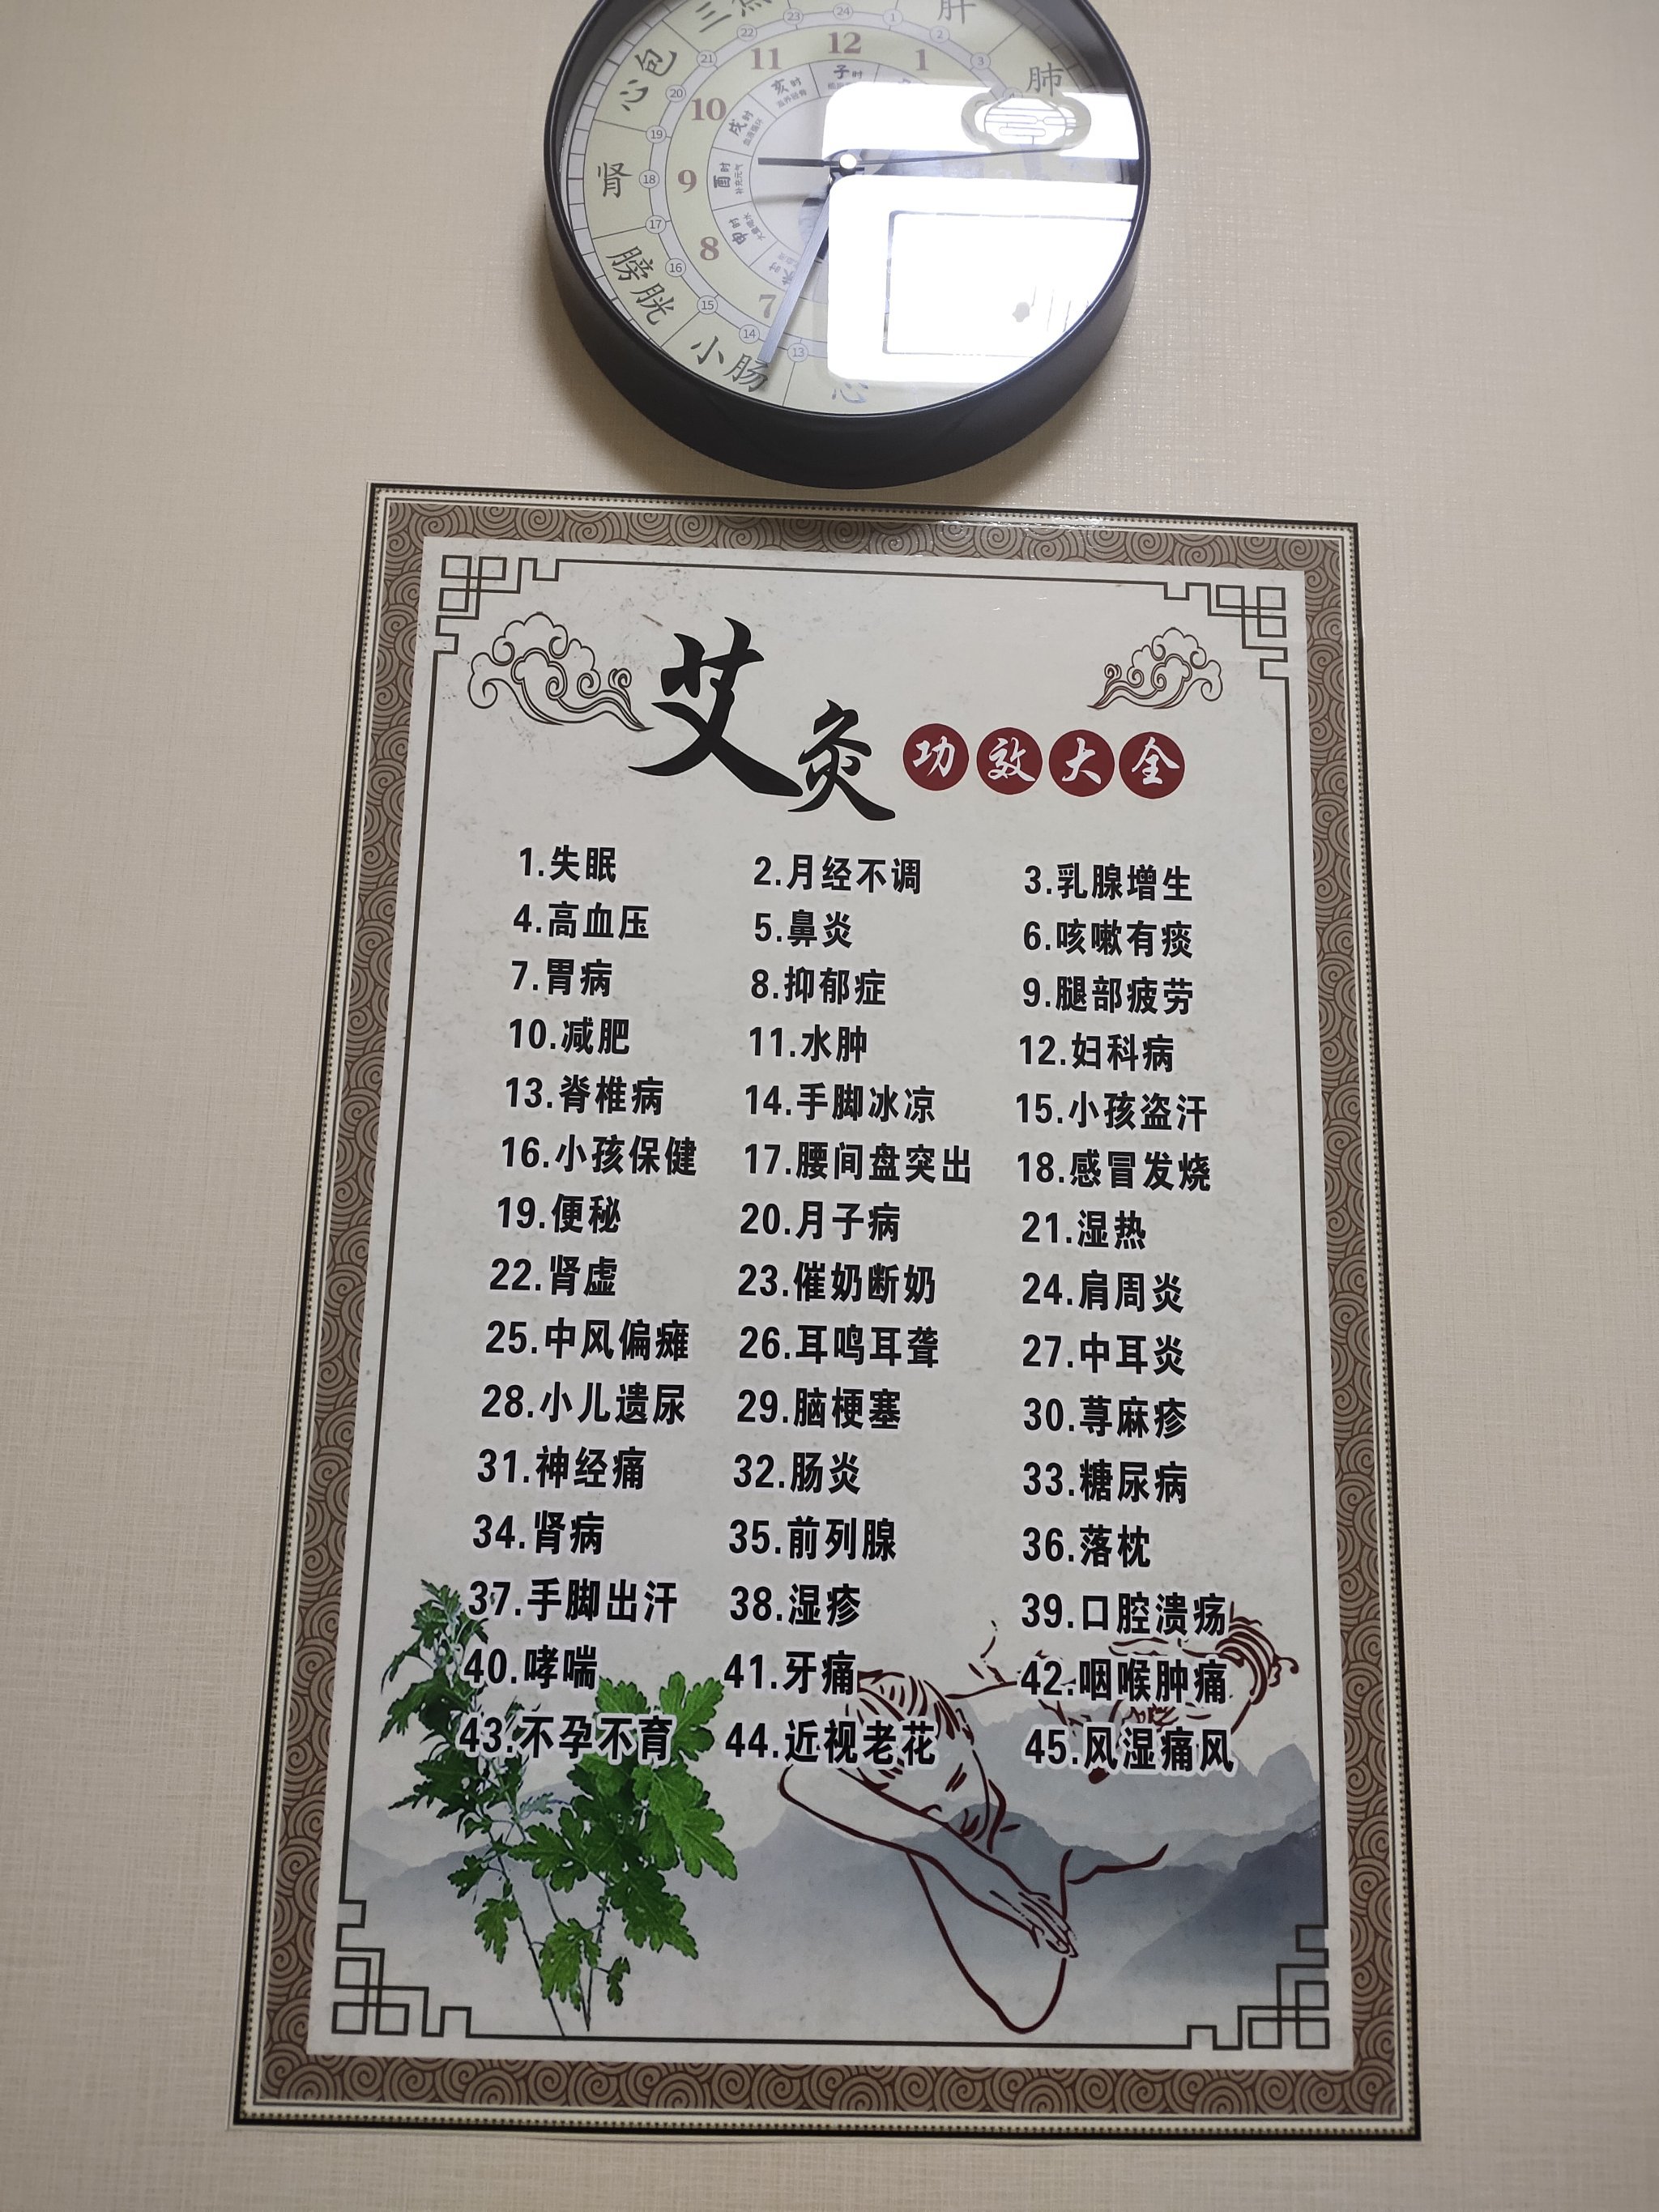 三焦 23 24 1 肝
22 2
心包 21 11 12 1 3 肺
20 10 亥时 子时
19 戌时
肾 18 9 酉时 补充元气
17 申时
膀胱 16 8
15 7
小肠 14 13 心
艾灸 功效大全
1.失眠 2.月经不调 3.乳腺增生
4.高血压 5.鼻炎 6.咳嗽有痰
7.胃病 8.抑郁症 9.腿部疲劳
10.减肥 11.水肿 12.妇科病
13.脊椎病 14.手脚冰凉 15.小孩盗汗
16.小孩保健 17.腰间盘突出 18.感冒发烧
19.便秘 20.月子病 21.湿热
22.肾虚 23.催奶断奶 24.肩周炎
25.中风偏瘫 26.耳鸣耳聋 27.中耳炎
28.小儿遗尿 29.脑梗塞 30.荨麻疹
31.神经痛 32.肠炎 33.糖尿病
34.肾病 35.前列腺 36.落枕
37.手脚出汗 38.湿疹 39.口腔溃疡
40.哮喘 41.牙痛 42.咽喉肿痛
43.不孕不育 44.近视老花 45.风湿痛风